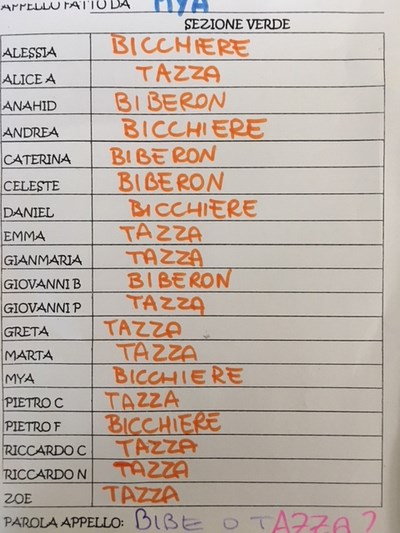 APPELLO FATTO DA MYA
SEZIONE VERDE
ALESSIA BICCHIERE
ALICE A TAZZA
ANAHID BIBERON
ANDREA BICCHIERE
CATERINA BIBERON
CELESTE BIBERON
DANIEL BICCHIERE
EMMA TAZZA
GIANMARIA TAZZA
GIOVANNI B BIBERON
GIOVANNI P TAZZA
GRETA TAZZA
MARTA TAZZA
MYA BICCHIERE
PIETRO C TAZZA
PIETRO F BICCHIERE
RICCARDO C TAZZA
RICCARDO N TAZZA
ZOE TAZZA
PAROLA APPELLO: BIBE O TAZZA?